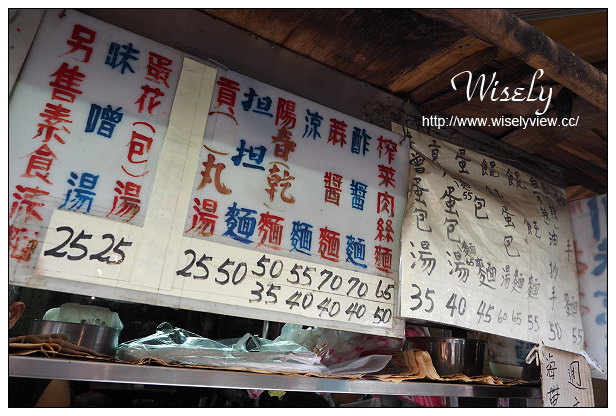 Wisely
http://www.wiselyview.cc/
榨菜肉絲麵 65 50
酢醬麵 70 40
蔴醬麵 70 40
涼麵 55 40
陽春(乾)麵 50 35
担担麵 50
貢(丸)湯 25
蛋花(包)湯 25
味噌湯 25
另售素食涼麵
55 50 55
餛 麵 65
餛 蛋包湯 60
蛋包麵 45
貢 蛋包湯 40
噌蛋包湯 35